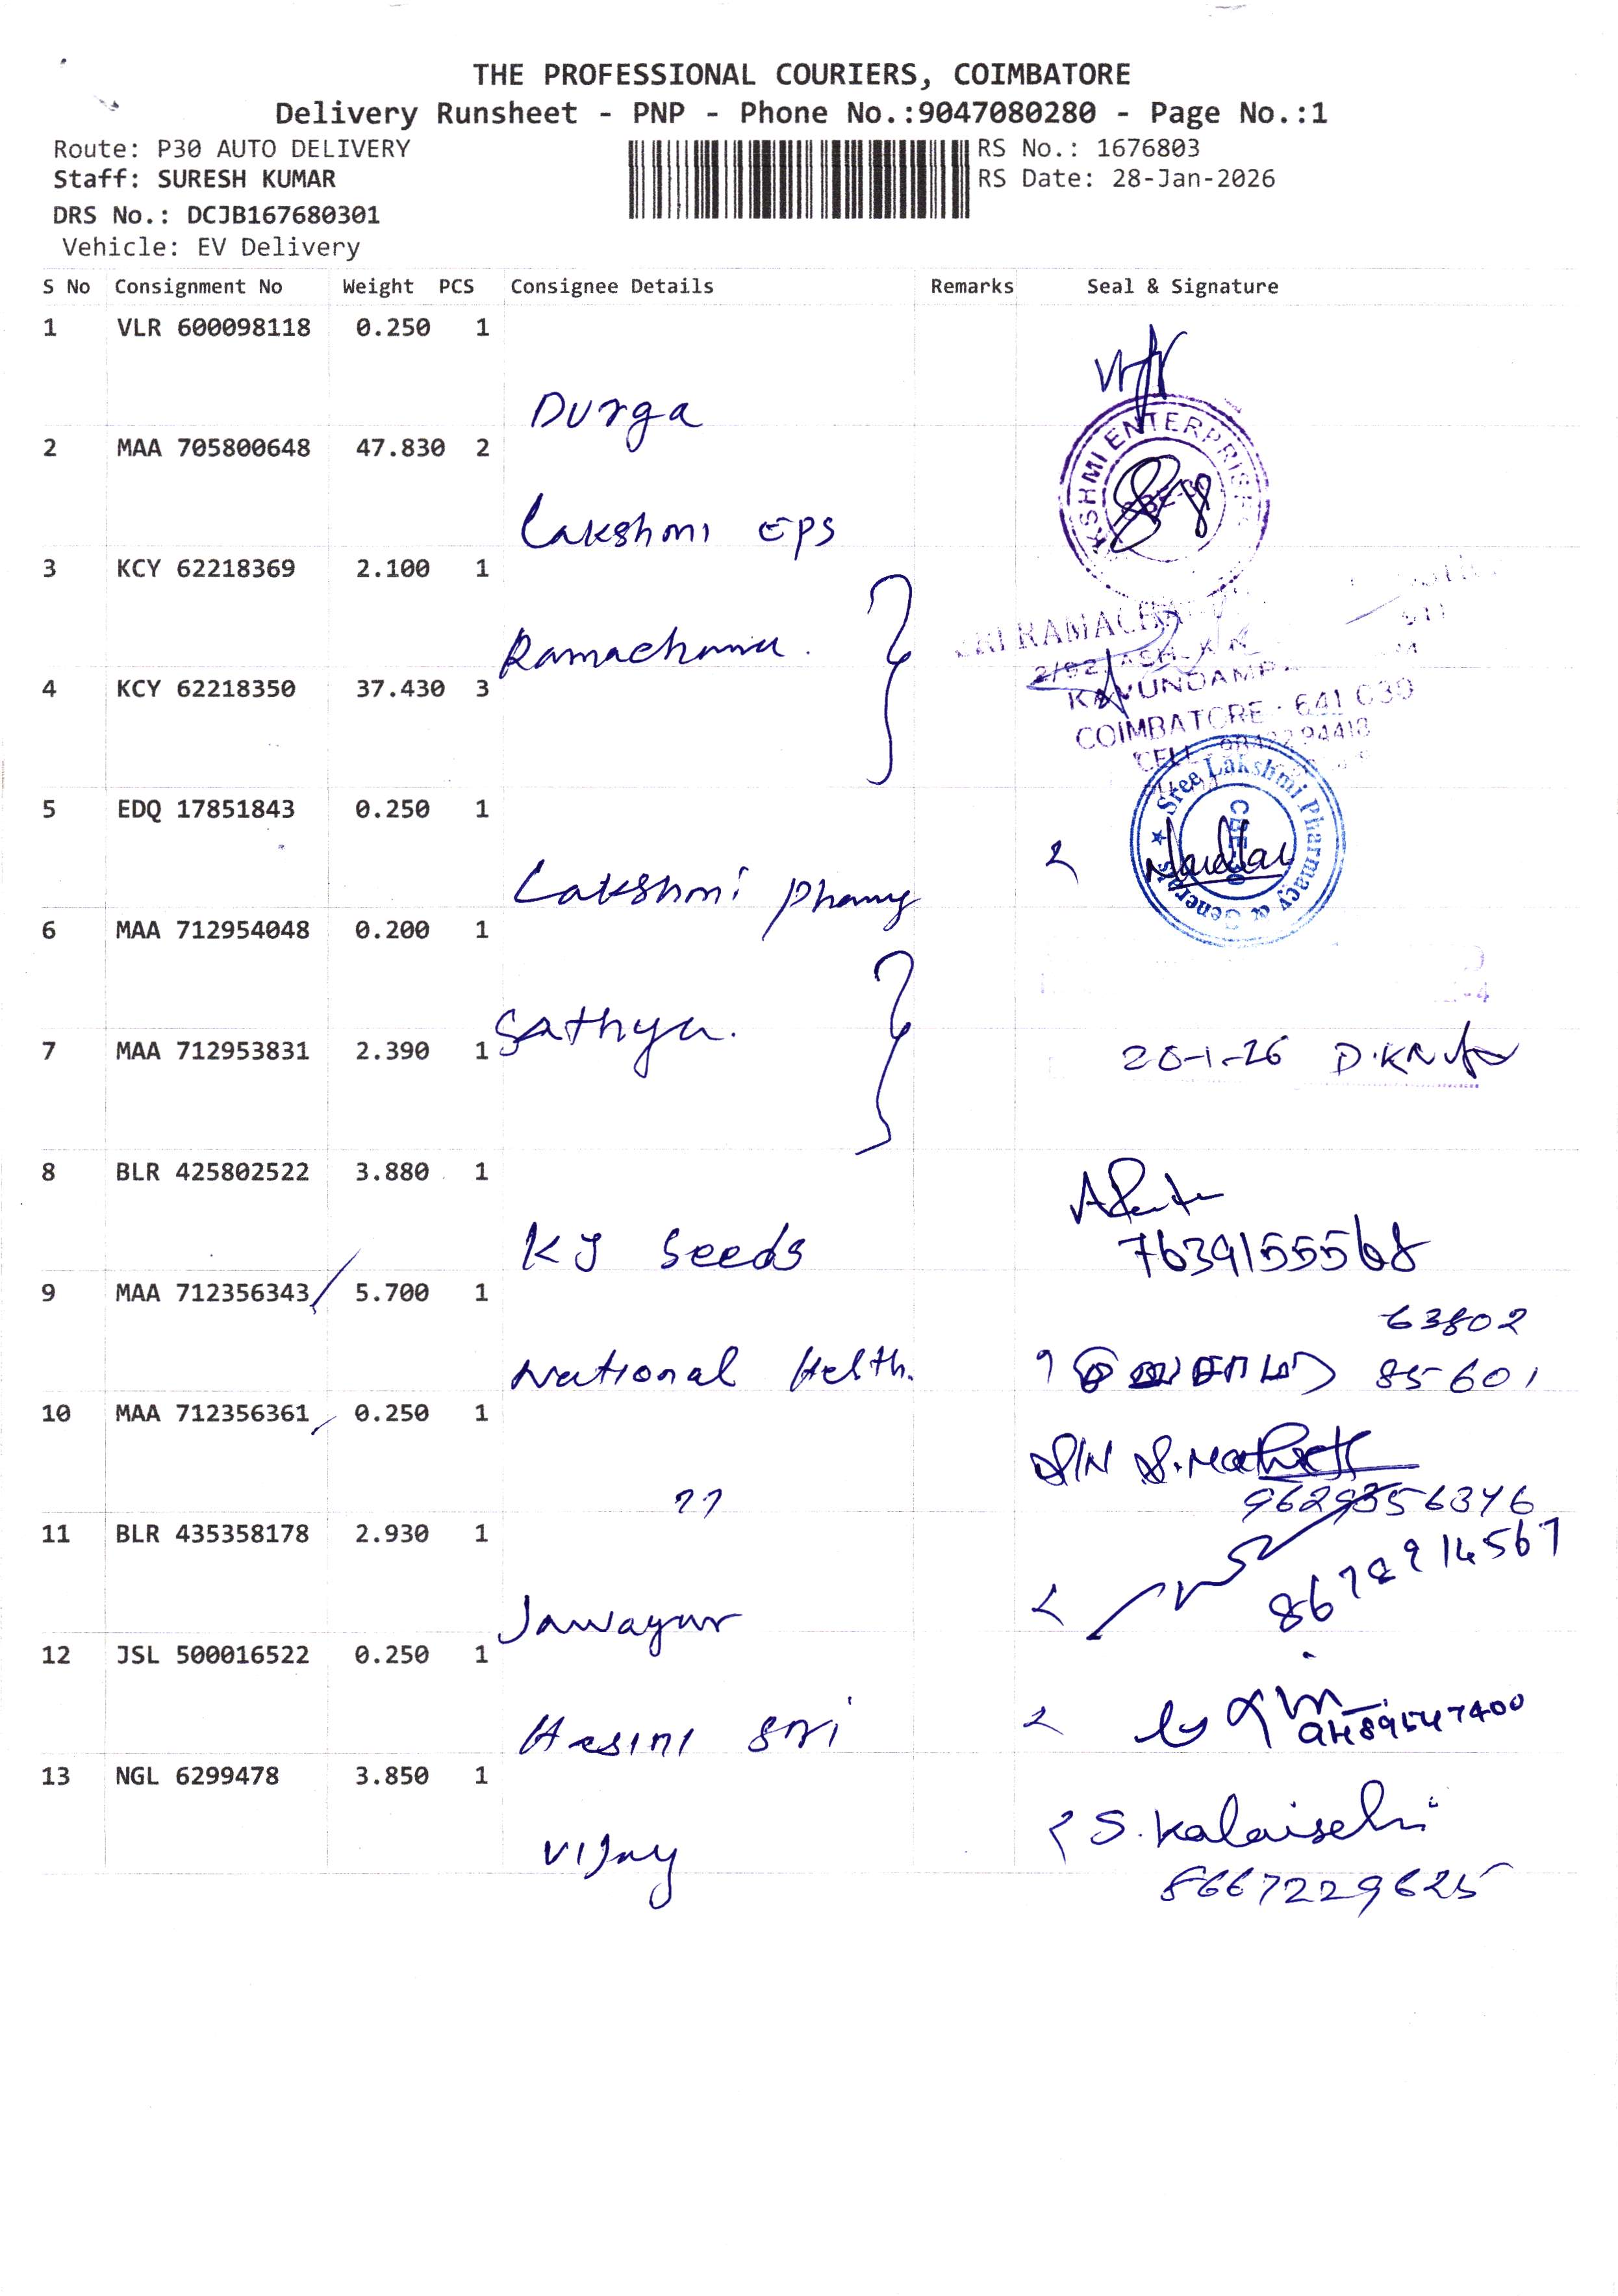 THE PROFESSIONAL COURIERS, COIMBATORE
Delivery Runsheet - PNP - Phone No.:9047080280 - Page No.:1
Route: P30 AUTO DELIVERY
RS No.: 1676803
Staff: SURESH KUMAR
RS Date: 28-Jan-2026
DRS No.: DCJB167680301
Vehicle: EV Delivery
S No Consignment No Weight PCS Consignee Details Remarks Seal & Signature
1 VLR 600098118 0.250 1
Durga
2 MAA 705800648 47.830 2
LAKSHMI ENTERPRISES
Lakshmi EPS
3 KCY 62218369 2.100 1
SRI RAMACHA
4 KCY 62218350 37.430 3
COIMBATORE - 641 030
5 EDQ 17851843 0.250 1
Sree Lakshmi Pharmacy & General
Lakshmi
6 MAA 712954048 0.200 1
Sathya.
7 MAA 712953831 2.390 1
8 BLR 425802522 3.880 1
KJ Seeds
7639155568
9 MAA 712356343 5.700 1
63802
National Helth. 85601
10 MAA 712356361 0.250 1
11
9629356346
11 BLR 435358178 2.930 1
12 JSL 500016522 0.250 1
Hesini Sri
13 NGL 6299478 3.850 1
S. Kalaiselvi
Vijay
8667229625